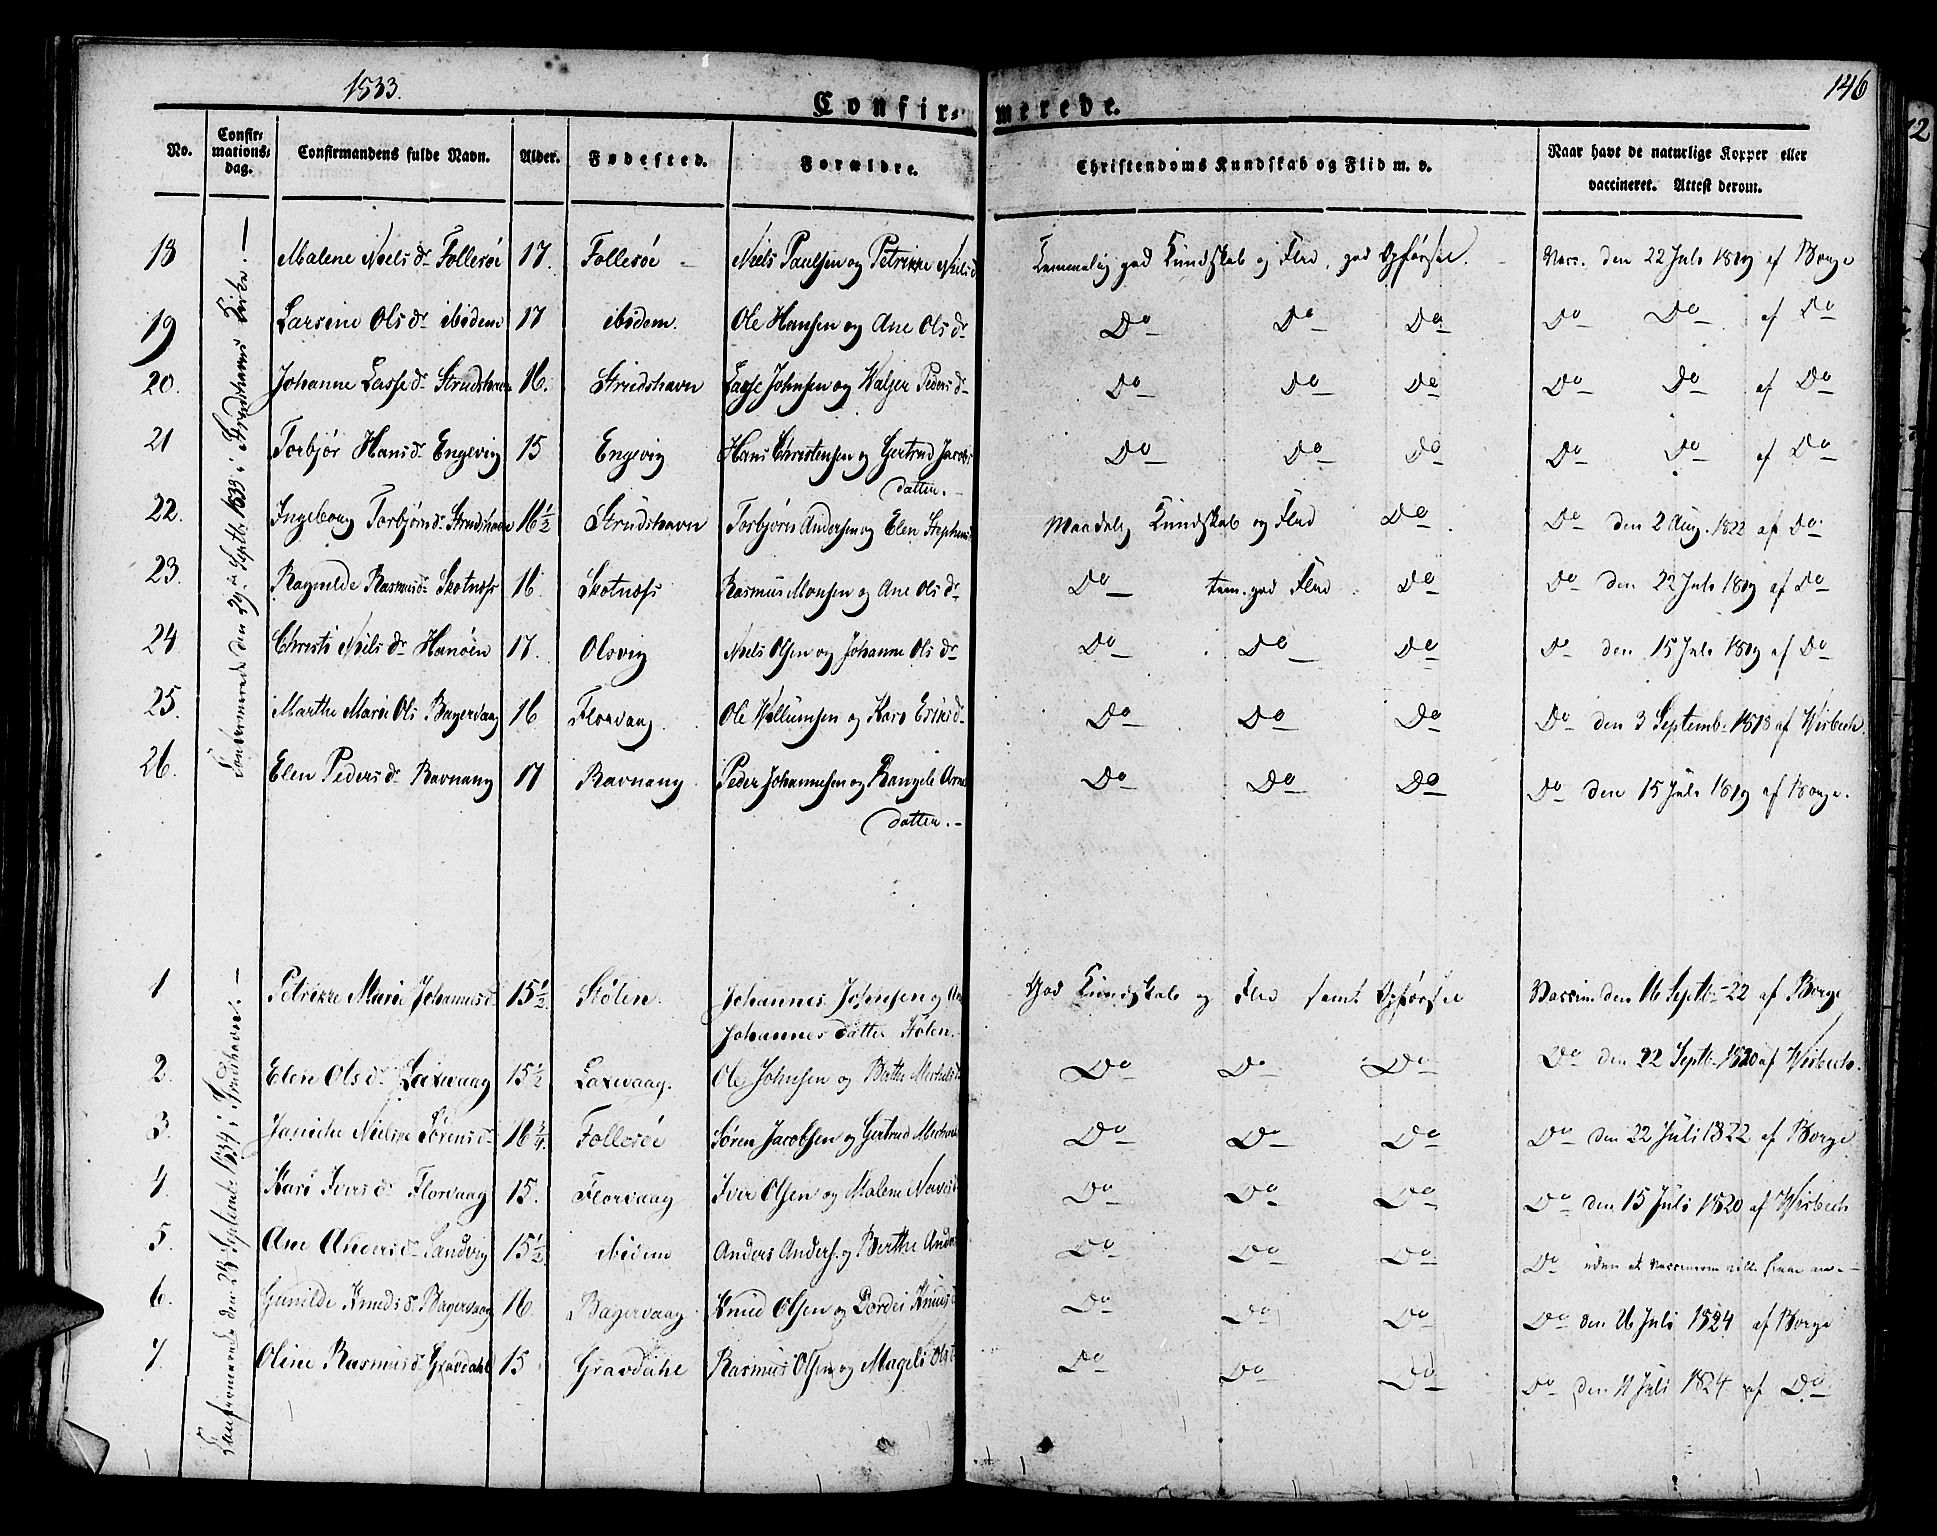 1833.
146
Confirmerede.
No.
Confirmationsdag.
Confirmandens fulde Navn.
Alder.
Fødested.
Forældre.
Christendoms Kundskab og Flid m. v.
Naar havt de naturlige Kopper eller vaccineret. Attest derom.
Confirmerede den 29de Septb. 1833 i Strudshavns Kirke. —
18 Malene Nielsdr Follesøe 17. Follesøe Niels Paulsen og Petrikke Nielsd Temmelig god Kundskab og Flid, god Opførsel. Vacc. den 22 Juli 1819 af Borge
19 Larsine Olsdr ibidem 17 ibidem. Ole Hansen og Ane Olsdr Do Do Do Do Do af Do
20. Johanne Lassedr Strudshavn 16. Strudshavn Lasse Johnsen og Pedersdr Do Do Do Do Do af Do
21 Torbjør Hansdr Engevig 15 Engevig Hans Christensen og Gertrud Jacobs
datten. Do Do Do Do Do af Do
22. Ingeborg Torbjørnsdr Strudshavn 16½ Strudshavn Torbjørn Andersen og Elen Stephens Maadelig Kundskab og Flid Do Do den 2 Aug. 1822 af Do
23. Ragnilde Rasmusdr Skotnæss 16. Skotnæss Rasmus Monsen og Ane Olsdr Do tem. god Flid Do Do den 22 Juli 1819 af Do
24 Christi Nielsdr Hanøen 17. Olsvig Niels Olsen og Johanne Olsdr Do Do Do Do den 15 Juli 1819 af Do
25. Marthe Marie Ols Bagervaag 16 Florvaag Ole Willumsen og Kari Eriksd Do Do Do Do den 3 Septemb. 1818 af Wisbech.
26. Elen Pedersdr Ravnang 17 Ravnang Peder Johannesen og Rangele
datten. Do Do Do Do den 15 Juli 1819 af Borge.
Confirmerede den 28 September 1834 i Strudshavn. —
1 Petrikke Marie Johannesd 15½ Stølen. Johannes Johnsen og
Johannesdatter Stølen. God Kundskab og Flid samt Opførsel Vaccin den 16 Septb. 22 af Borge
2. Elen Olsdr Laxevaag 15½ Laxevaag. Ole Johnsen og Berthe Michels Do Do Do Do den 22 Septb. 1820 af Wisbech.
3. Nielsine Sørensd 16¾ Follesøe Søren Jacobsen og Gertrud Do Do Do Do den 22 Juli 1822 af Borge
4. Kari Iversdr Florvaag 15. Florvaag Iver Olsen og Malene Do Do Do Do den 15 Juli 1820 af Wisbech
5. Ane Andersdr Sandvig 15½ ibidem Anders Anders. og Berthe Ander Do Do Do Do uden at
6. Gunilde Knudsdr Bagervaag 16. Bagervaag Knud Olsen og Dordei Knudsd Do Do Do Do den 16 Juli 1824 af Borge
7. Oline Rasmusdr Gravdahl 15 Gravdahl Rasmus Olsen og Mageli Ols Do Do Do Do den 11 Juli 1824 af Do